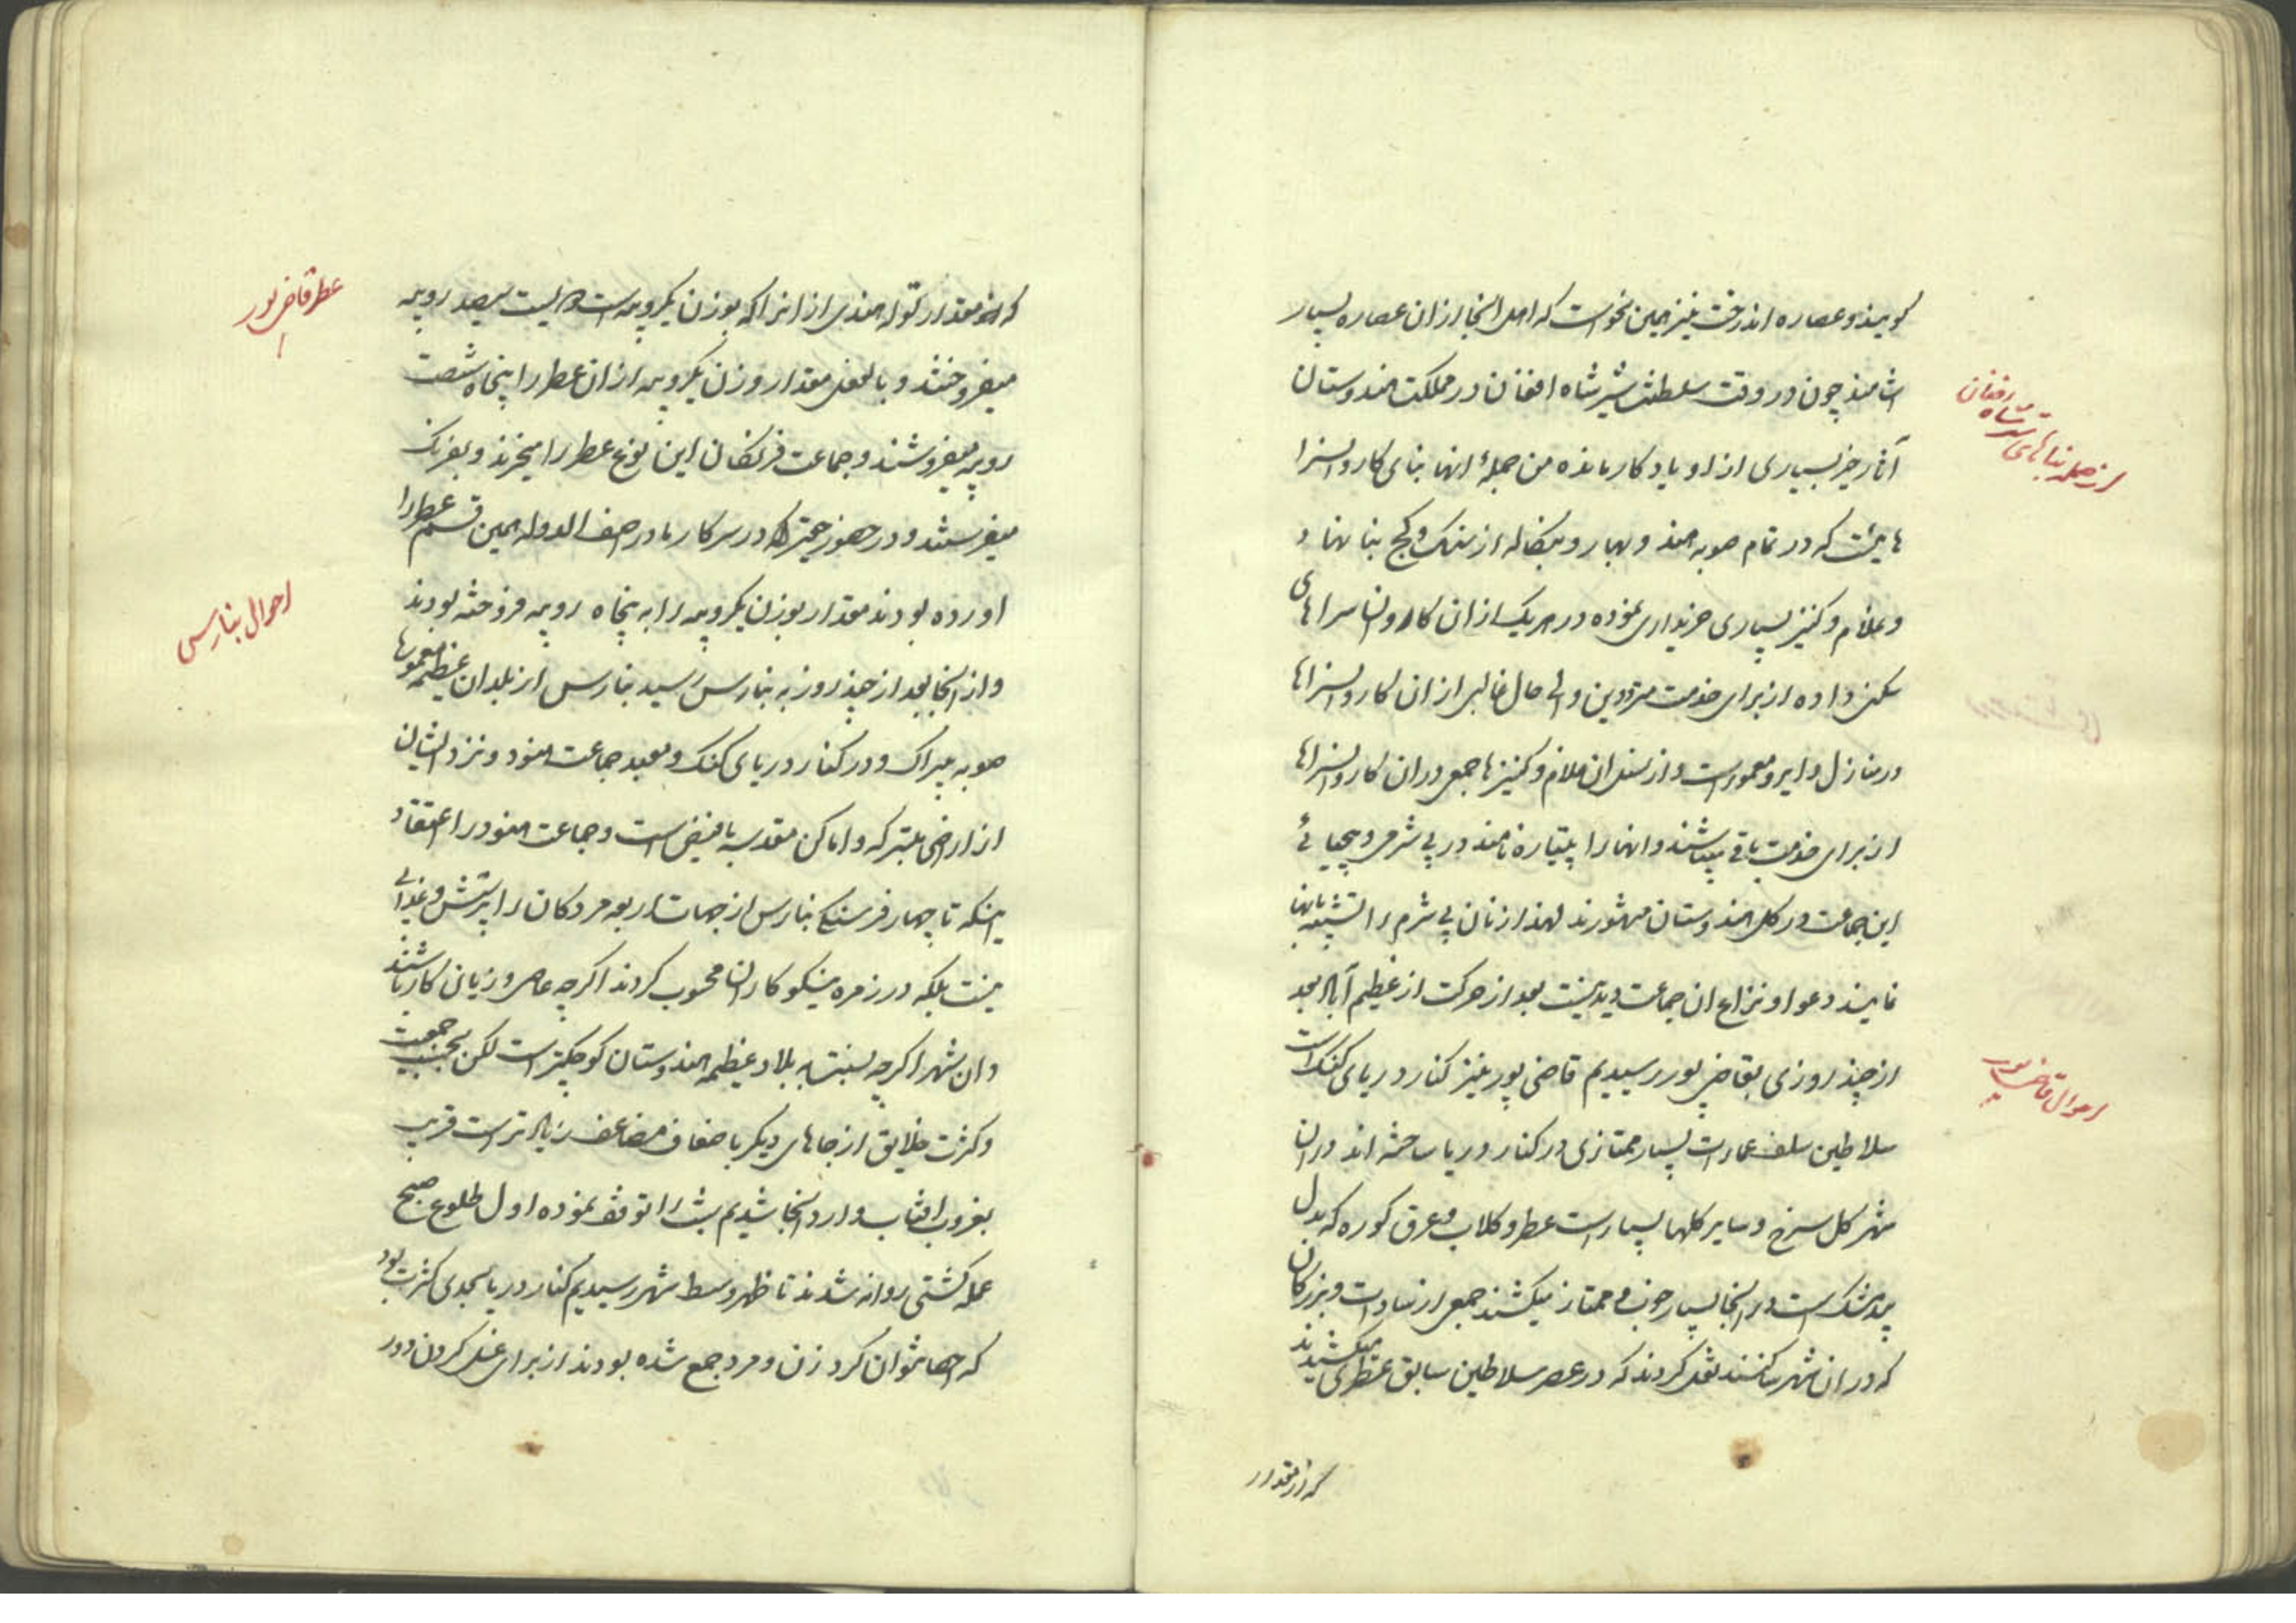 کویند و عصاره اندرخت نیز همین نحو است که اهل انجا ازان عصاره بسیار
اشامند چون در وقت سلطنت شیر شاه افغان در مملکت هندوستان
از جمله بناهای شیر شاه افغان
آثار خیر بسیاری از او یادکار مانده من جمله انها بنای کاروانسرا
هائیست که در تمام صوبه هند و بهار و بنکاله از سنک و کج بنا نهاد
و غلام و کنیز بسیاری خریداری نموده در هریک ازان کاروان سراهای
سکنی داده از برای خدمت مترددین و الی حال غالبی ازان کاروانسراها
در منازل دایر و معمور است و از نسل ان غلام و کنیزها جمعی دران کاروانسراها
از برای خدمت باقی میباشند و انها را پتیاره نامند در بی شرمی و بیحیائی
این جماعت در کل هندوستان مشهورند لهذا زنان بی شرم را تشبیه بانها
نمایند دعوا و نزاع ان جماعت دیدنیست بعد از حرکت از عظیم آباد بعد
از چند روزی بقاضی پور رسیدیم قاضی پور نیز کنار دریای کنک است
احوال قاضی پور
سلاطین سلف عمارات بسیار ممتازی در کنار دریا ساخته اند دران
شهر کل سرخ و سایر کلها بسیار است عطر و کلاب و عرق کوره که بدل
بیدمشک است در انجا بسیار خوب و ممتاز میکشند جمعی از سادات و بزرکان
که در ان شهر ساکنند نقل کردند که در عصر سلاطین سابق عطری میکشیدند
که از مقدار
که از مقدار توله هندی ازانرا که بوزن یکروپیه است دویست سیصد روپیه
عطر قاضی پور
میفروختند و بالفعل مقدار وزن یکروپیه ازان عطر را پنجاه شصت
روپیه میفروشند و جماعت فرنکان این نوع عطر را میخرند و بفرنک
میفرستند و در حضور حقیر که در سرکار مادر اصف الدوله همین قسم عطر را
اورده بودند مقدار بوزن یکروپیه را به پنجاه روپیه فروخته بودند
احوال بنارس
و از انجا بعد از چند روز به بنارس رسید بنارس از بلدان عظیمه معموره
صوبه و در کنار دریای کنک و معبد جماعت هنود و نزد ایشان
از اراضی متبرکه و اماکن مقدسه با فیض است و جماعت هنود را اعتقاد
اینکه تا چهار فرسنکی بنارس از جهات اربعه مردکان را پرسش و عذابی
نیست بلکه در زمره نیکوکاران محسوب کردند اکرچه عاصی و زیان کار باشند
و ان شهر اکرچه بنسبت به بلاد عظیمه هندوستان کوچکتر است لکن بحسب جمعیت
و کثرت خلایق از جاهای دیکر باضعاف مضاعف زیاد تر است قریب
بغروب افتاب وارد انجا شدیم شب را توقف نموده اول طلوع صبح
عمله کشتی روانه شدند تا ظهر وسط شهر رسیدیم کنار دریا بحدی کثرت بود
که احصا نتوان کرد زن و مرد جمع شده بودند از برای غسل کردن و در